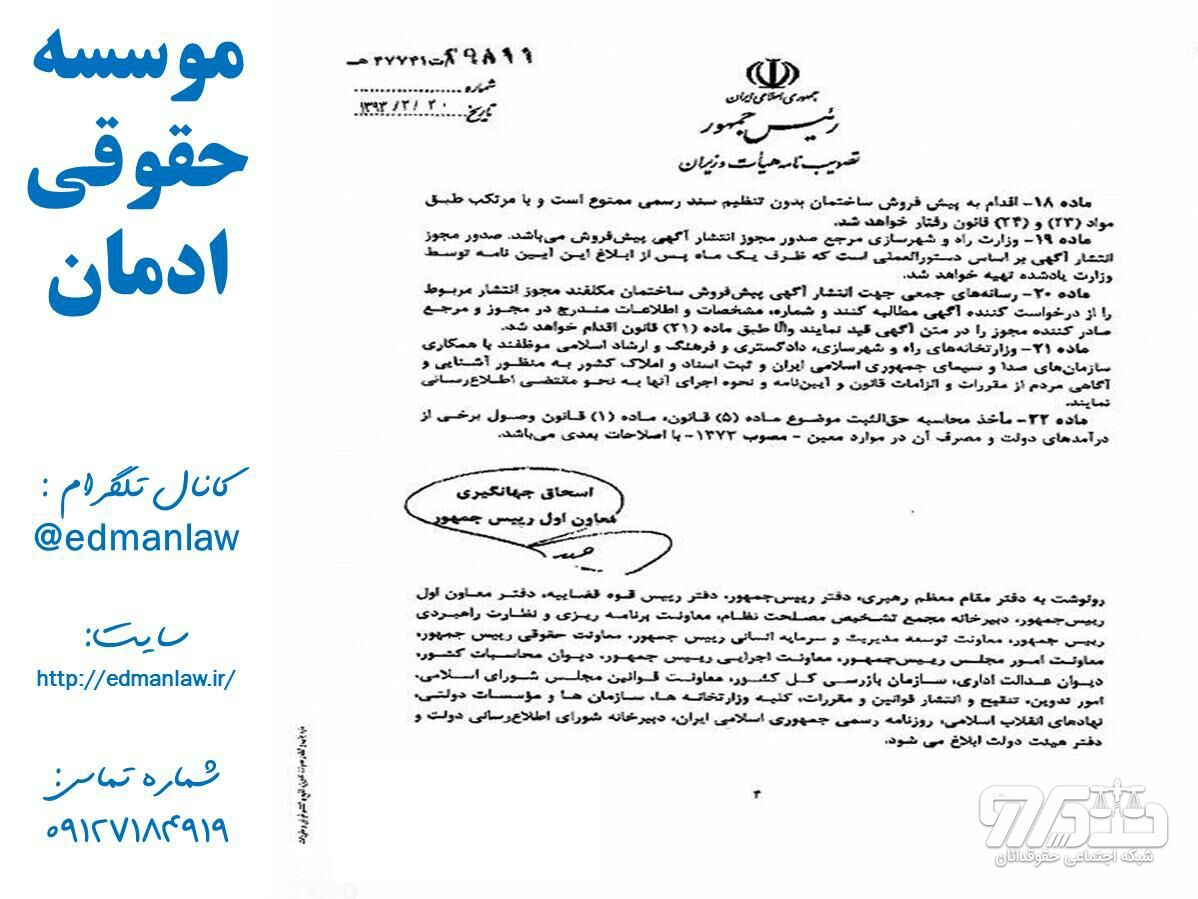 موسسه
حقوقی
ادمان
کانال تلگرام :
@edmanlaw
سایت:
http://edmanlaw.ir/
شماره تماس:
۰۹۱۲۷۱۸۴۹۱۹
۴۹۸۱۱/ت۴۷۷۴۱هـ
شماره
تاریخ ۱۳۹۳/۲/۲۰
جمهوری اسلامی ایران
رئیس جمهور
تصویب نامه هیأت وزیران
ماده ۱۸- اقدام به پیش فروش ساختمان بدون تنظیم سند رسمی ممنوع است و با مرتکب طبق
مواد (۲۳) و (۲۴) قانون رفتار خواهد شد.
ماده ۱۹- وزارت راه و شهرسازی مرجع صدور مجوز انتشار آگهی پیش‌فروش می‌باشد. صدور مجوز
انتشار آگهی بر اساس دستورالعملی است که ظرف یک ماه پس از ابلاغ این آیین نامه توسط
وزارت یادشده تهیه خواهد شد.
ماده ۲۰- رسانه‌های جمعی جهت انتشار آگهی پیش‌فروش ساختمان مکلفند مجوز انتشار مربوط
را از درخواست کننده آگهی مطالبه کنند و شماره، مشخصات و اطلاعات مندرج در مجوز و مرجع
صادر کننده مجوز را در متن آگهی قید نمایند والّا طبق ماده (۲۱) قانون اقدام خواهد شد.
ماده ۲۱- وزارتخانه‌های راه و شهرسازی، دادگستری و فرهنگ و ارشاد اسلامی موظفند با همکاری
سازمان‌های صدا و سیمای جمهوری اسلامی ایران و ثبت اسناد و املاک کشور به منظور آشنایی و
آگاهی مردم از مقررات و الزامات قانون و آیین‌نامه و نحوه اجرای آنها به نحو مقتضی اطلاع‌رسانی
نمایند.
ماده ۲۲- مأخذ محاسبه حق‌الثبت موضوع ماده (۵) قانون، ماده (۱) قانون وصول برخی از
درآمدهای دولت و مصرف آن در موارد معین - مصوب ۱۳۷۳- با اصلاحات بعدی می‌باشد.
اسحاق جهانگیری
معاون اول رییس جمهور
رونوشت به دفتر مقام معظم رهبری، دفتر رییس‌جمهور، دفتر رییس قوه قضاییه، دفتر معاون اول
رییس‌جمهور، دبیرخانه مجمع تشخیص مصلحت نظام، معاونت برنامه ریزی و نظارت راهبردی
رییس جمهور، معاونت توسعه مدیریت و سرمایه انسانی رییس جمهور، معاونت حقوقی رییس جمهور،
معاونت امور مجلس رییس‌جمهور، معاونت اجرایی رییس جمهور، دیوان محاسبات کشور،
دیوان عدالت اداری، سازمان بازرسی کل کشور، معاونت قوانین مجلس شورای اسلامی،
امور تدوین، تنقیح و انتشار قوانین و مقررات، کلیه وزارتخانه ها، سازمان ها و مؤسسات دولتی،
نهادهای انقلاب اسلامی، روزنامه رسمی جمهوری اسلامی ایران، دبیرخانه شورای اطلاع‌رسانی دولت و
دفتر هیئت دولت ابلاغ می شود.
۴
شبکه اجتماعی حقوقدانان